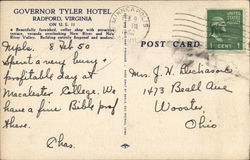 GOVERNOR TYLER HOTEL
RADFORD, VIRGINIA
ON U.S. 11
Beautifully furnished, coffee shop with attractive
terrace, veranda overlooking New River and New
River Valley. Building entirely fireproof and modern.
MINNEAPOLIS
POST CARD
1 CENT 1
Mpls. 8 Feb 50
Spent a very busy &
profitable day at
Macalester College. We
have a fine Bible prof
there.
Chas.
Mrs. J. H.
1473 Beall Ave
Wooster,
Ohio